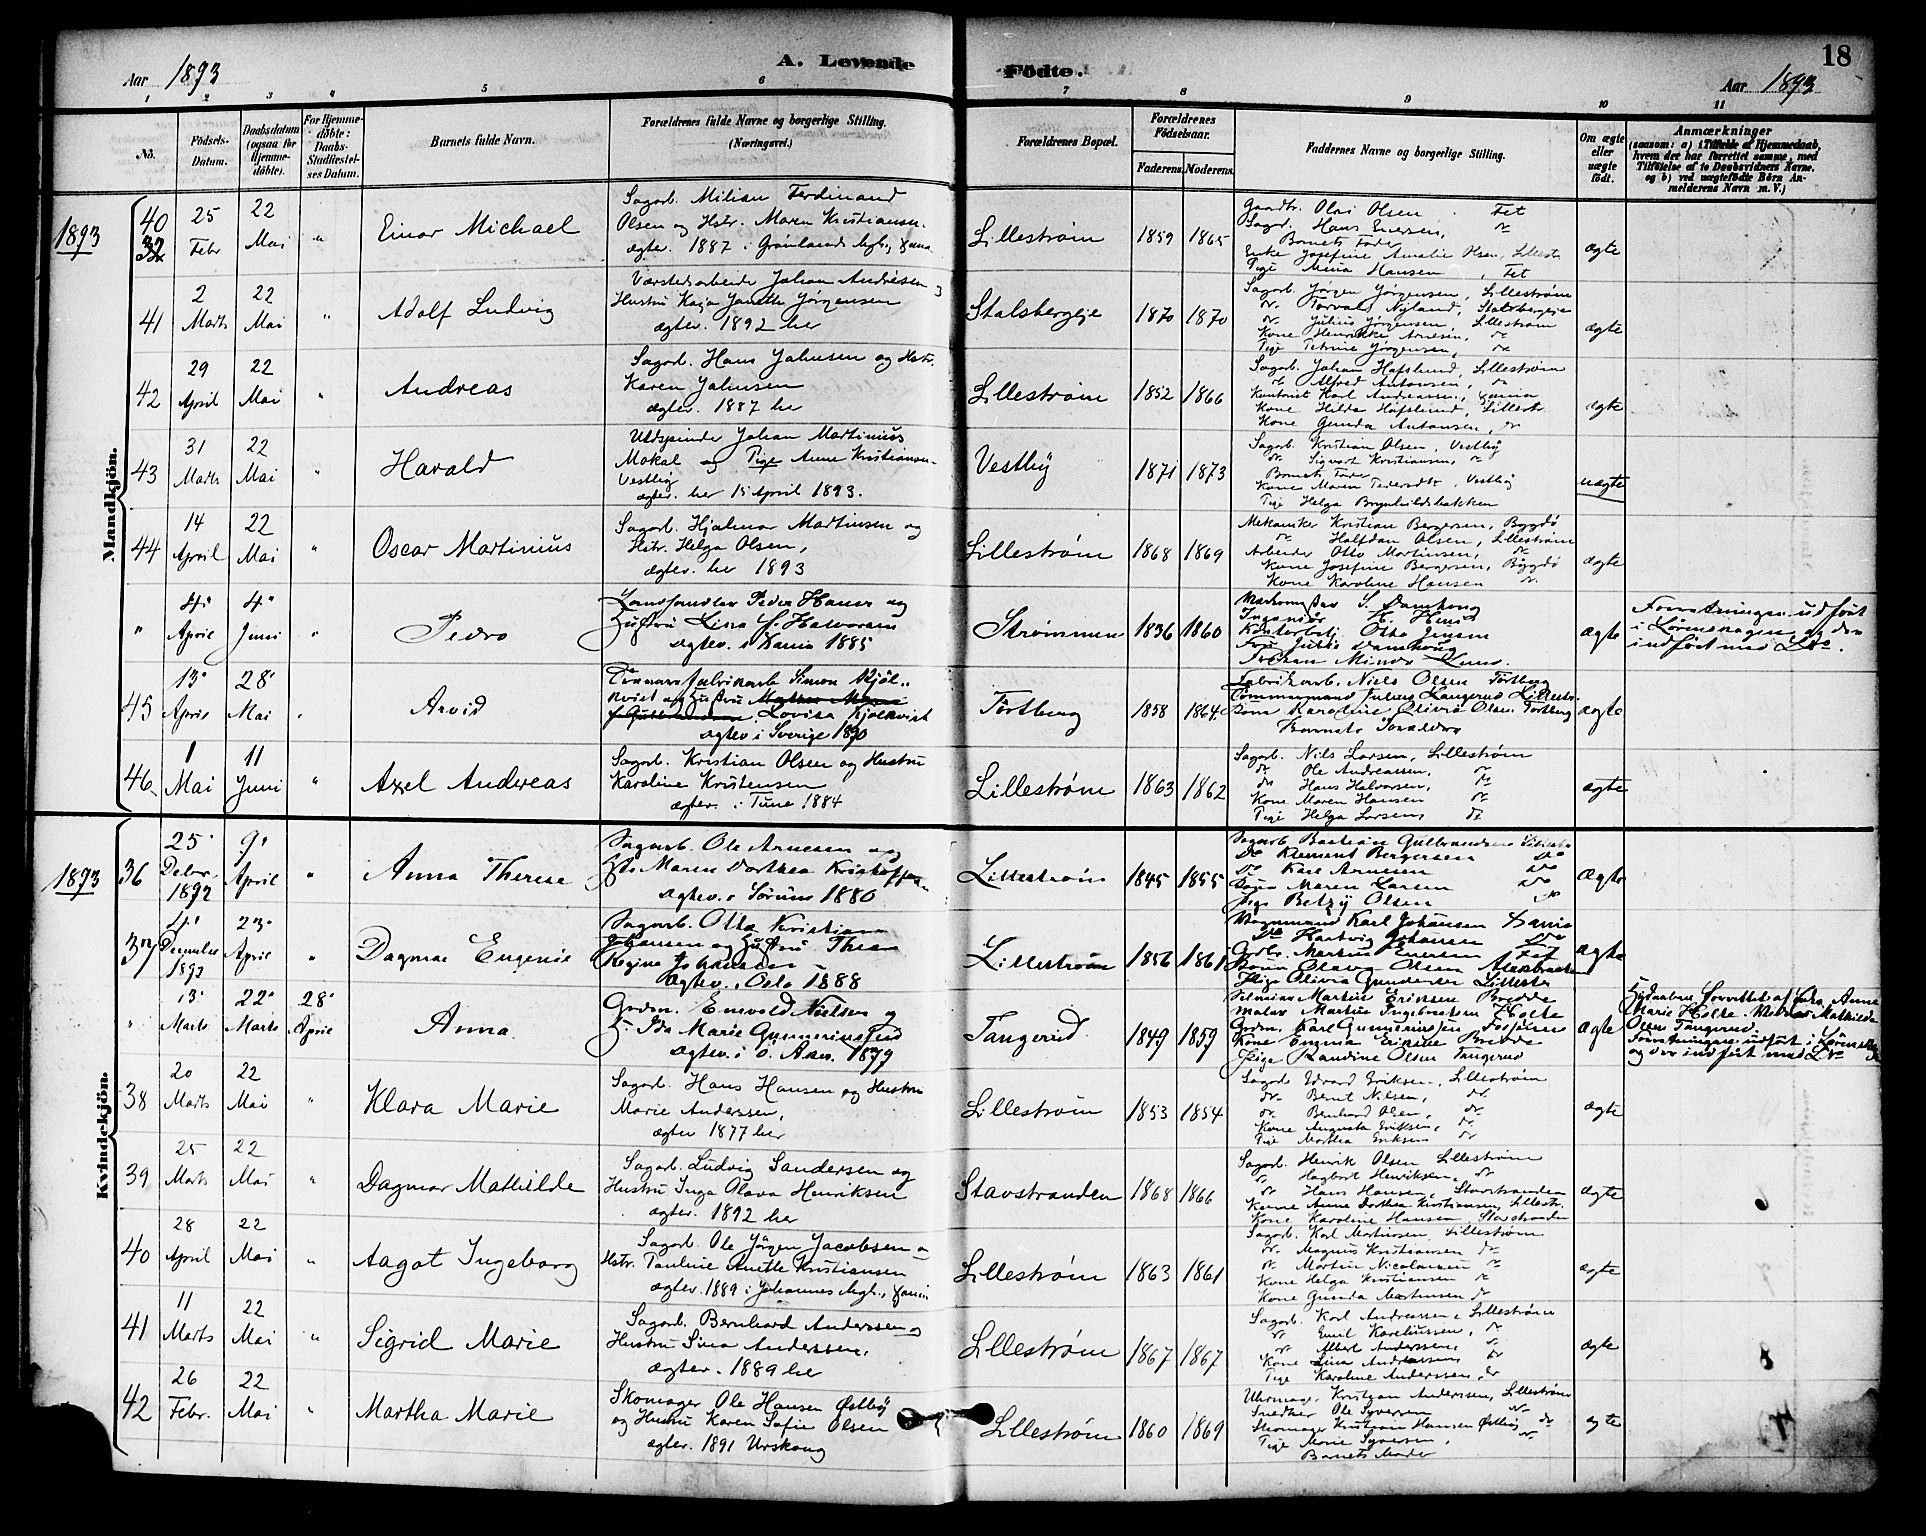 18
Aar 1893
A. Levende
Födte.
Aar 1893
1 2 3 4 5 6 7 8 9 10 11
No.
Födsels-Datum.
Daabsdatum (ogsaa for Hjemmedöbte).
For Hjemmedöbte: Daabs-Stadfæstelses Datum.
Barnets fulde Navn.
Forældrenes fulde Navne og borgerlige Stilling.
(Næringsvei.)
Forældrenes Bopæl.
Forældrenes Födselsaar.
Faderens. Moderens.
Faddernes Navne og borgerlige Stilling.
Om ægte eller uægte født.
Anmærkninger
(saasom: a) i Tilfælde af Hjemmedaab,
hvem der har forrettet samme, med
Tilföielse af to Daabsvidners Navne.
og b) ved uægtefödte Börn An-
melderens Navn m. V.)
Mandkjön.
1893
40 25 Febr 22 Mai " Einar Michael
Sagarb. Milian Ferdinand
Olsen og Hstr. Maren Kristiansen.
ægtev. 1887 i Grønlands Mgh.,
Lillestrøm 1859 1865
Gaardbr. Olai Olsen Fet
Sagarb. Hans Enersen, do
Barnets Fader
Enke Josefine Amalie Olsen, Lillestr.
Pige Mina Hansen, Fet
ægte
41 2 Marts 22 Mai " Adolf Ludvig
Værkstedsarbeider Johan Andresen og
Hustru Kaja Janette Jørgensen
ægtev. 1892 her
Stalsbergeje 1870 1870
Sagarb. Jørgen Jørgensen, Lillestrøm
do. Torvald Nyland, Stalsbergeje
do. Julius Jørgensen, Lillestrøm
Kone Henrikke Arnesen, do
Pige Petrine Jørgensen, do
ægte
42 29 April 22 Mai " Andreas
Sagarb. Hans Johnsen og Hstr.
Karen Johnsen
ægtev. 1887 her
Lillestrøm 1852 1866
Sagarb. Johan Hafslund, Lillestrøm
do Alfred Antonsen, do
Kontorist Karl Andreassen,
Kone Hilda Hafslund, Lillestr.
Kone Gunda Antonsen, do
ægte
43 31 Marts 22 Mai " Harald
Uldspinder Johan Martinius
Mokal og Pige Anne Kristiansen
Vestby
ægtev. her 15 April 1893.
Vestby 1871 1873
Sagarb. Kristian Olsen, Vestby
do. Sigvart Kristiansen, do
Barnets Fader
Kone Maren, Vestby
Pige Helga Brynhildsbakken
uægte
44 14 April 22 Mai " Oscar Martinius
Sagarb. Hjalmar Martinsen og
Hstr. Helga Olsen,
ægtev. her 1893
Lillestrøm 1868 1869
Mekaniker Kristian Bergersen, Bygdø
do Halfdan Olsen, Lillestrøm
Arbeider Otto Martinsen, do
Kone Josefine Bergersen, Bygdø
Kone Karoline Hansen do.
ægte
" 4 April 4 Juni " Pedro
Landhandler Peder Hansen og
Hustru Lina f. Halvorsen
ægtev. i 1885
Strømmen 1836 1860
S. Damhoug
Ingeniør
Kontorbetj. Otto Jensen
Fru Julie Damhoug
ægte
Forretningen udført
i Lørenskogen og der
indført med LNo.
45 13 April 28 Mai " Arvid
Simon Kjöl-
kvist og Hustru
Lovisa Kjölkvist
ægtev. i Sverige 1890
Tærtberg 1858 1864
Fabrikarb. Niels Olsen
Tømmermand Julius Langerud Lillestr.
Kone Karoline Olivia Olsen
Barnets Forældre
ægte
46 1 Mai 11 Juni " Axel Andreas
Sagarb. Kristian Olsen og Hustru
Karoline Kristensen
ægtev. i Tune 1884
Lillestrøm 1863 1862
Sagarb. Nils Larsen, Lillestrøm
do Ole Andreassen, do
do Hans Halvorsen, do
Kone Maren Hansen do
Pige Helga Larsen, do
ægte
Kvindekjön.
1893
36 25 Debr. 1892 9 April " Anna Therese
Sagarb. Ole Arnesen og
Maren Dorthea Kristoffersen
ægtev. i Sørum 1880
Lillestrøm 1845 1855
Sagarb Bastian Gulbrandsen Lillestr
Do Klement Bergersen Do
Do Karl Arnesen Do
Kone Maren Larsen Do
Pige Betzy Olsen
ægte
37 4 December 1892 23 April " Dagmar Eugenie
Sagarb. Otto Kristian
Johansen og Hustru Thea
Regine Johansen
ægtev. i Oslo 1888
Lillestrøm 1856 1861
Karl Johansen
Do Hartvig Johansen Do
Gbr. Martin Evensen Fet
Kone Olava Olsen
Pige Olivia Gundersen Lillestr
ægte
" 13 Marts 22 Marts 28 April Anna
Gbrm. Enevold Nielsen og
H. Ida Marie Gunneriusen
ægtev. i Ö. Aker 1879
Tangerud 1849 1859
Martin Eriksen Bredde
Maler Martin Ingebretsen Holte
Gbrm. Karl Gunneriussen
Kone Emma Eriksen Bredde
Pige Randine Olsen Tangerud
ægte
Hjdaaben forrettet af Anne
Marie Holte. Mathilde
Olsen Tangerud.
Forretningen udført i Lørensk.
og der indført med LNo
38 20 Marts 22 Mai " Klara Marie
Sagarb. Hans Hansen og Hustru
Marie Anderssen,
ægtev 1877 her
Lillestrøm 1853 1854
Sagarb Edvard Eriksen, Lillestrøm
do. Bernt Nilsen, do.
do. Bernhard Olsen, do.
Kone Augusta Eriksen, do
Pige Martha Eriksen do
ægte
39 25 Marts 22 Mai " Dagmar Mathilde
Sagarb. Ludvig Sandersen og
Hustru Inga Olava Henriksen
ægtev. 1892 her
Stavstranden 1868 1866
Sagarb. Henrik Olsen Lillestrøm
do Hagbart Henriksen, do
do Hans Hansen, Stavstranden
Kone Anne Dorthea Kristiansen, Lillestr.
Kone Karoline Hansen, Stavstranden
ægte
40 28 April 22 Mai " Aagot Ingeborg
Sagarb. Ole Jörgen Jacobsen og
Hstr. Pauline Anette Kristiansen
ægtev. 1889 i Johannes Mgh.,
Lillestrøm 1863 1861
Sagarb. Karl Martinsen, Lillestrøm
do. Magnus Kristiansen do
do. Martin Nicolaisen do
Kone Helga Kristiansen do
Kone Gunda Martinsen do
ægte
41 11 Marts 22 Mai " Sigrid Marie
Sagarb. Bernhard Anderssen og
Hustru Lina Anderssen,
ægtev. 1889 her
Lillestrøm 1867 1867
Sagarb. Karl Andreassen, Lillestrøm
do Emil Kareliussen, do
do Albert Anderssen, do
Kone Lina Andreassen do
Pige Karoline Anderssen, do
ægte
42 26 Febr. 22 Mai " Martha Marie
Skomager Ole Hansen Østby
og Hustru Karen Sofie Olsen
ægtev. 1891 Urskoug
Lillestrøm 1860 1869
Uhrmager Kristian Anderssen, Lillestrøm
Snedker Ole Syversen do.
Skomager Kristian Hansen Østby, do
Pige Marie Syversen, do
Barnets Moder
ægte